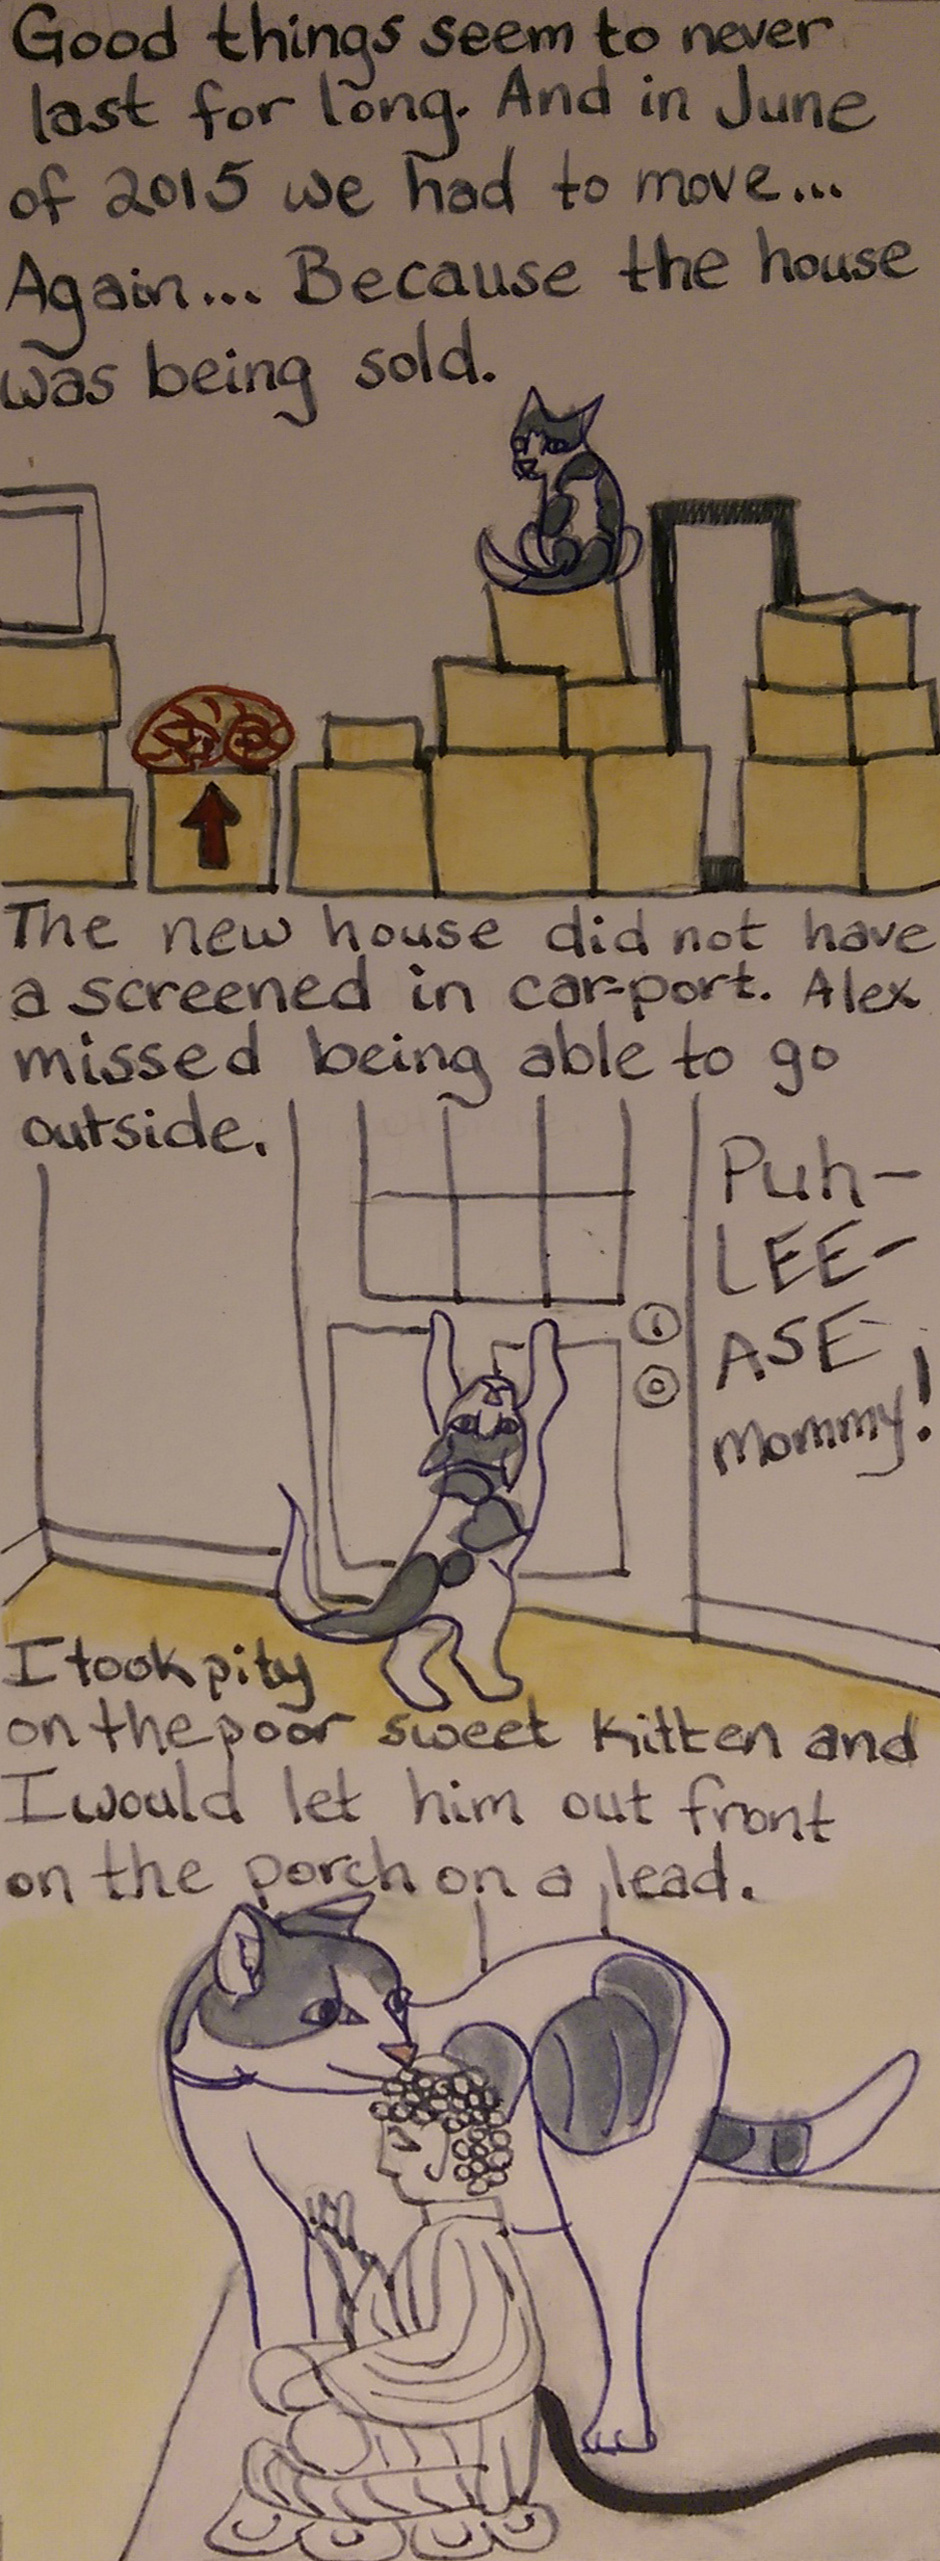 Good things seem to never
last for long. And in June
of 2015 we had to move...
Again... Because the house
was being sold.
The new house did not have
a screened in car-port. Alex
missed being able to go
outside.
Puh-
LEE-
ASE
Mommy!
I took pity
on the poor sweet kitten and
I would let him out front
on the porch on a lead.